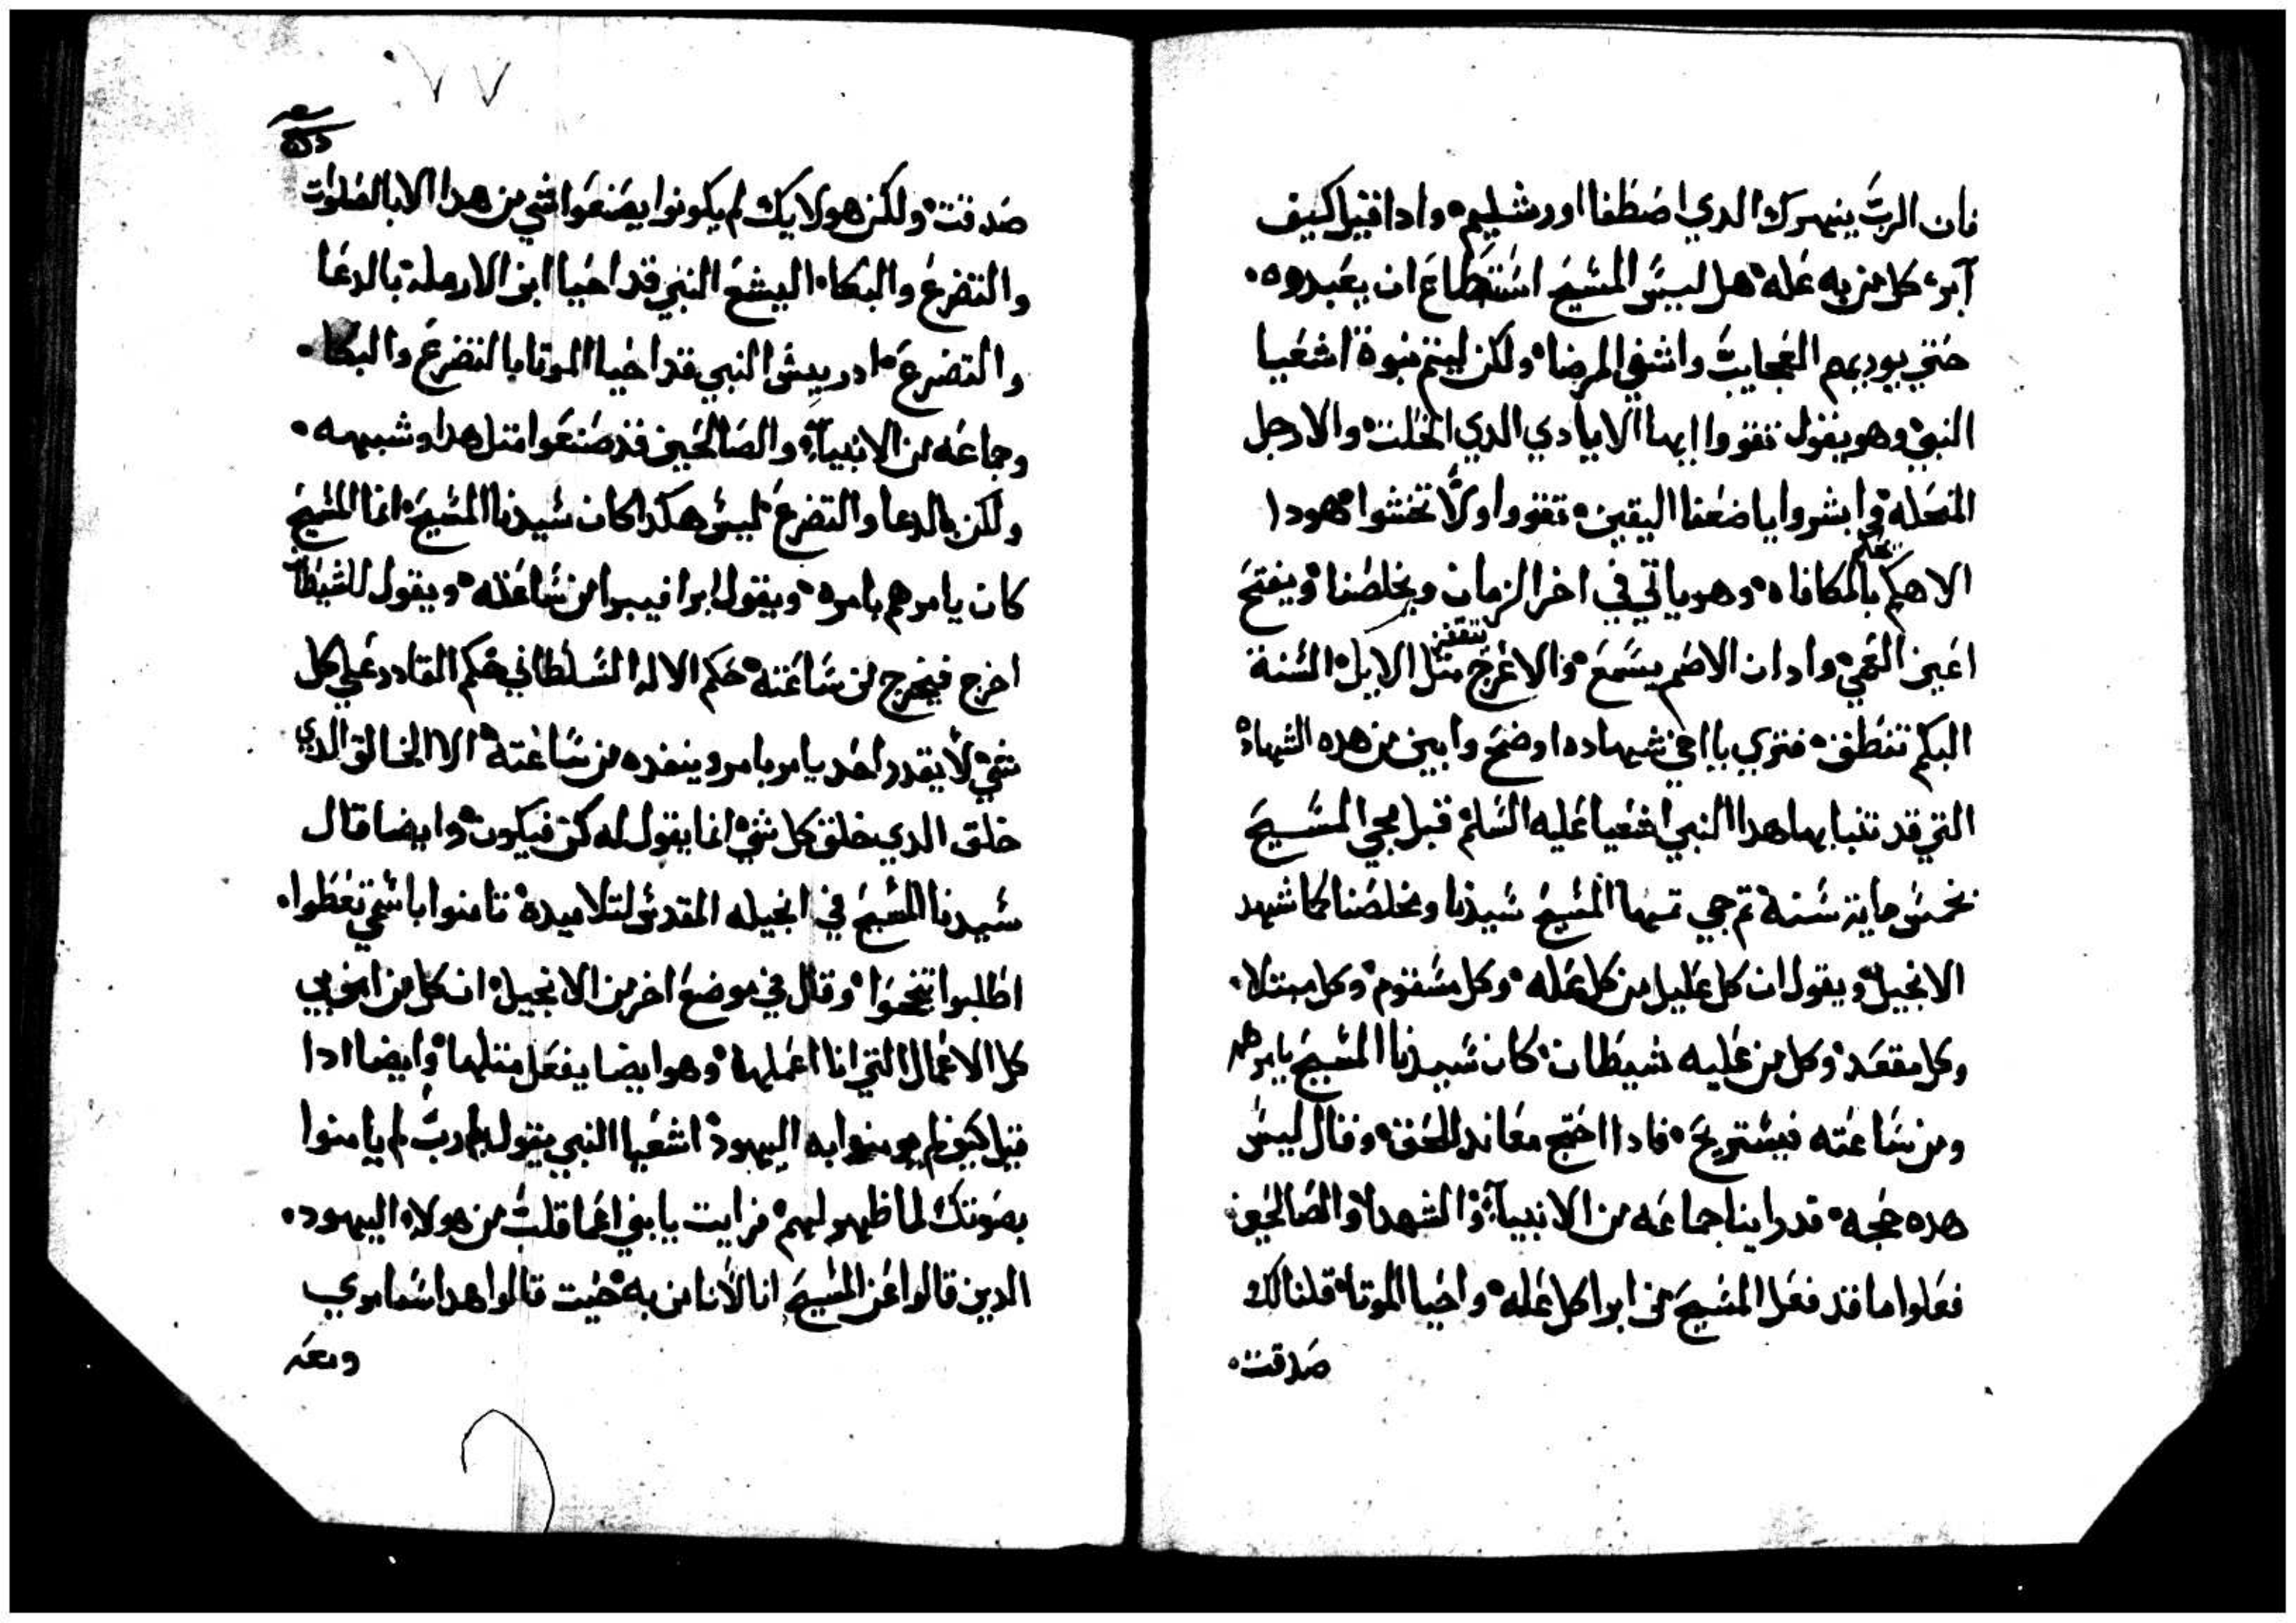 فان الرب ينهرك الدي اصطفا اورشليم وادا قيل كيف
آبر كل من به عله هل ليس المسيح استطاع ان يعبدوه
حتي يوريهم العجايب واشفي المرضا ولكن ليتم نبوة اشعيا
النبي وهو يقول تقووا ايها الايادي الدي انخلت والارجل
المنحله في ابشروا ياضعفا اليقين تقووا ولا تخشوا هودا
الاهكم بالمكافاه وهو ياتي في اخر الزمان ويخلصنا ويفتح
اعين العمي وادان الاصم يسمع والاعرج تقفز متل الايل السنة
البكم تنطق فتري يااخي شهاده اوضح وابين من هده الشهاده
التي قد تنبا بها هدا النبي اشعيا عليه السلم قبل مجي المسيح
بخمس ماية سنة تم جي تمها المسيح سيدنا ومخلصنا كما شهد
الانجيل ويقول ان كل عليل من كل عله وكل مسقوم وكل مبتلا
وكل مقعد وكل من عليه شيطان كان سيدنا المسيح يامرهم
ومن ساعته فيستريح فادا احتج معاند للحق وقال ليس
هده حجه قد راينا جماعه من الانبياء والشهدا والصالحين
فعلوا ما قد فعل المسيح من ابرا كل عله واحيا الموتا قلنا لك
صدقت
٧٧
صدقت ولكن هولايك لم يكونوا يصنعوا شي من هدا الا بالصلوات
والتضرع والبكا اليشع النبي قد احيا ابن الارملة بالدعا
والتضرع ادريس النبي قد احيا الموتا بالتضرع والبكا
وجماعه من الانبياء والصالحين قد صنعوا متل هدا وشبهه
ولكن بالدعا والتضرع ليس هكدا كان سيدنا المسيح انما المسيح
كان يامرهم بامره ويقول ابرا فيبرا من ساعته ويقول للشيطان
اخرج فيخرج من ساعته حكم الاله السلطاني حكم القادر علي كل
شي لا يقدر احد يامر بامر وينفده من ساعته الا الخالق الدي
خلق الدي خلق كل شي انما يقول له كن فيكون وايضا قال
سيدنا المسيح في انجيله المقدس لتلاميده تامنوا باسمي تعطوا
اطلبوا تنجحوا وقال في موضع اخر من الانجيل ان كل من امن بي
كل الاعمال التي انا اعملها وهو ايضا يفعل متلها وايضا ادا
قيل كيف لم يومنوا به اليهود اشعيا النبي يقول يارب لم يامنوا
بصوتك لما ظهر لهم فرايت يابني اعما قلب من هولاء اليهود
الدين قالوا عن المسيح انا لانامن به حيت قالوا هدا سامري
ومعه